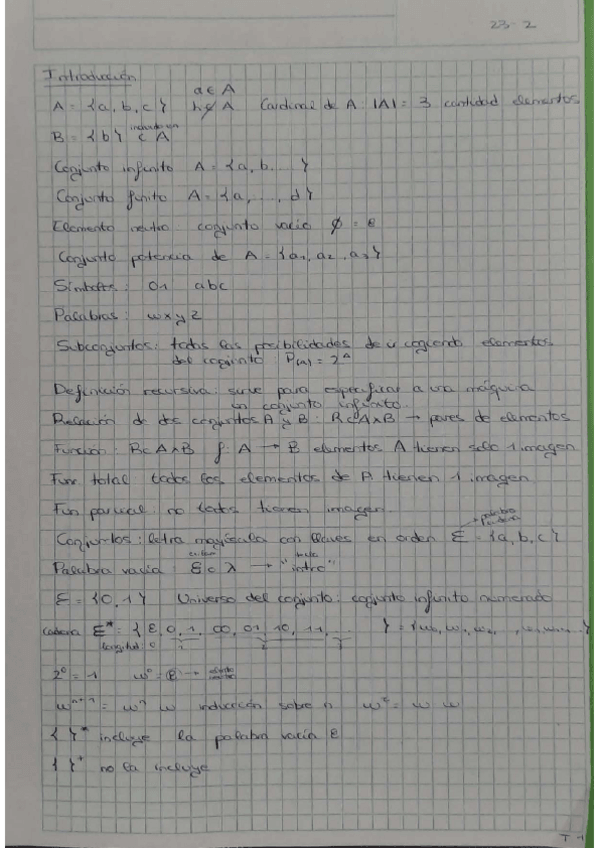 23-2
Introducción
a ∈ A
A = {a, b, c} h ∉ A Cardinal de A: |A| = 3 cantidad elementos
B = {b} ⊂ A
Conjunto infinito A = {a, b.... }
Conjunto finito A = {a, ..., d}
Elemento neutro: conjunto vacio ∅ = ε
Conjunto potencia de A = {a₁, a₂, a₃}
Símbolos: 01 abc
Palabras: wxyz
Subconjuntos: todas las posibilidades de ir cogiendo elementos
del conjunto P(A) = 2^A
Definición recursiva: sirve para especificar a una máquina
un conjunto infinito.
Relación de dos conjuntos A y B: R⊂A×B → pares de elementos
Función: R⊂A×B f: A → B elementos A tienen solo 1 imagen
Func. total todos los elementos de A tienen 1 imagen
Fun parcial: no todos tienen imagen.
Conjuntos: letra mayúscula con llaves en orden Σ = {a, b, c}
Palabra vacía: ε o λ → "intro"
Σ = {0, 1} Universo del conjunto: conjunto infinito numerado
cadena Σ*: {ε, 0, 1, 00, 01, 10, 11, ... } = {w₀, w₁, w₂, ...
longitud: 0 1 2
2⁰ = 1 w⁰ = ε →
wⁿ⁺¹ = wⁿ w inducción sobre n w² = w w
{ }* incluye la palabra vacía ε
{ }⁺ no la incluye
T-1